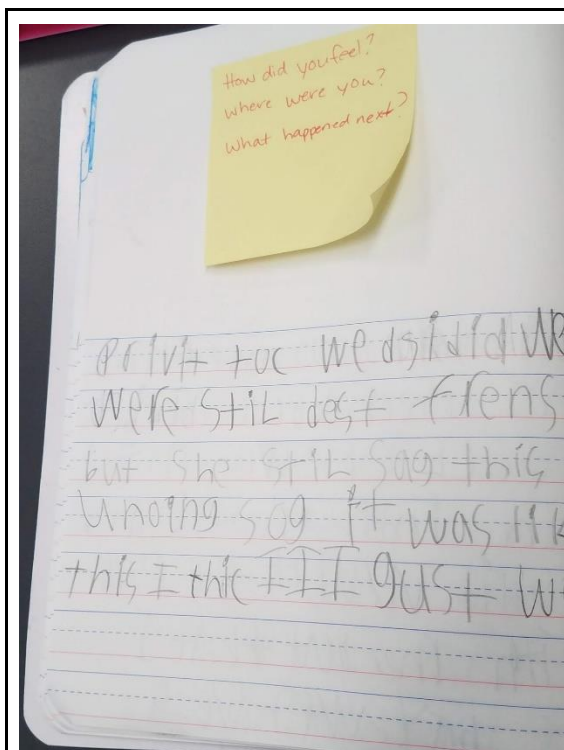 How did you feel?
where were you?
What happened next?
privit toc we dsidid we
were stiL dest frens
but she stiL sag this
unoing sog it was lik
this I thic I I I gust w